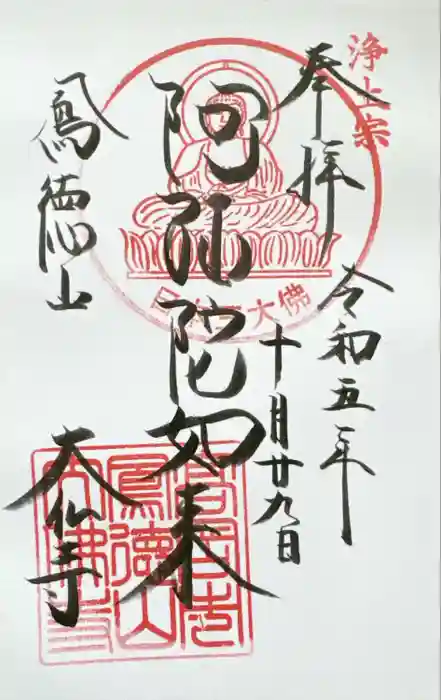 浄土宗
奉拝
令和五年
十月廿九日
阿弥陀如来
日本三大佛
鳳徳山
大仏寺
高岡市
鳳徳山
大佛寺